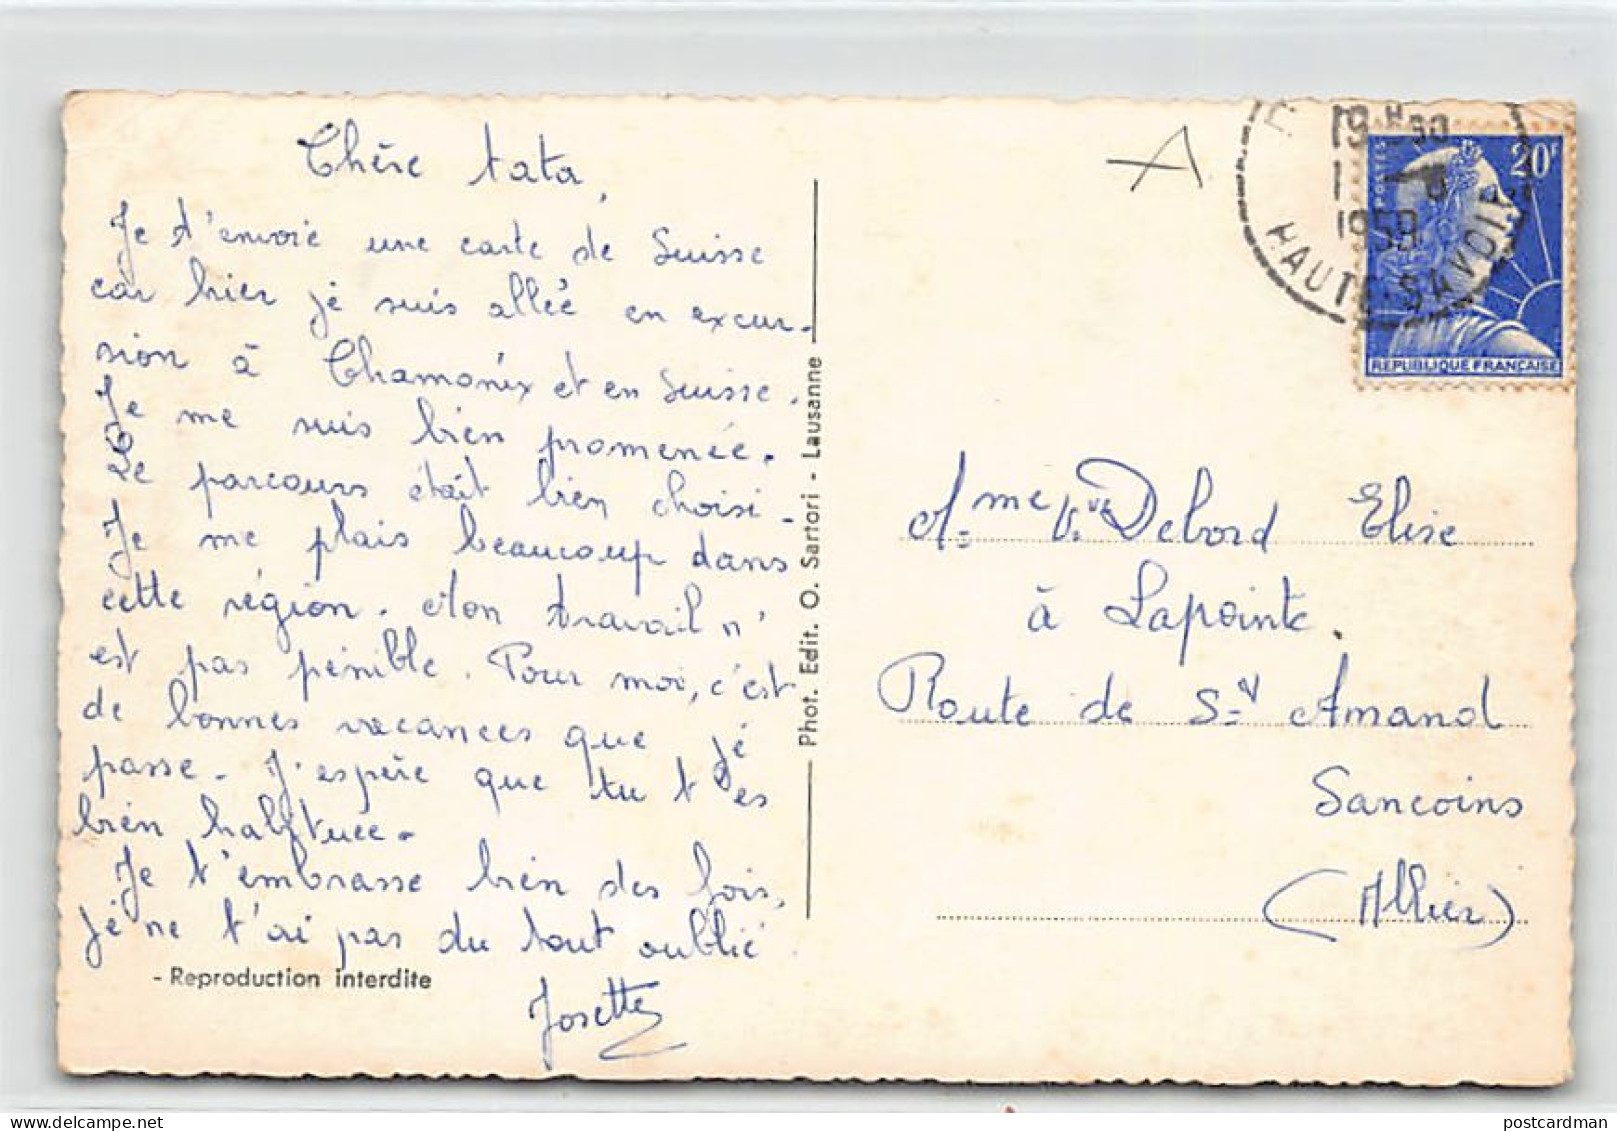 Chère tata,
Je t'envoie une carte de Suisse
car hier je suis allée en excur-
sion à Chamonix et en Suisse.
Je me suis bien promenée.
Le parcours était bien choisi.
Je me plais beaucoup dans
cette région. Mon travail n'
est pas pénible. Pour moi, c'est
de bonnes vacances que je
passe. J'espère que tu t'es
bien habituée.
Je t'embrasse bien des fois,
je ne t'ai pas du tout oublié
- Reproduction interdite
Josette
Phot. Edit. O. Sartori - Lausanne
19H30
1958
HAUTE-SAVOIE
POSTES
20F
REPUBLIQUE FRANÇAISE
Mme Vve Debord Elise
à Lapointe.
Route de St Amand
Sancoins
(Allier)
postcardman